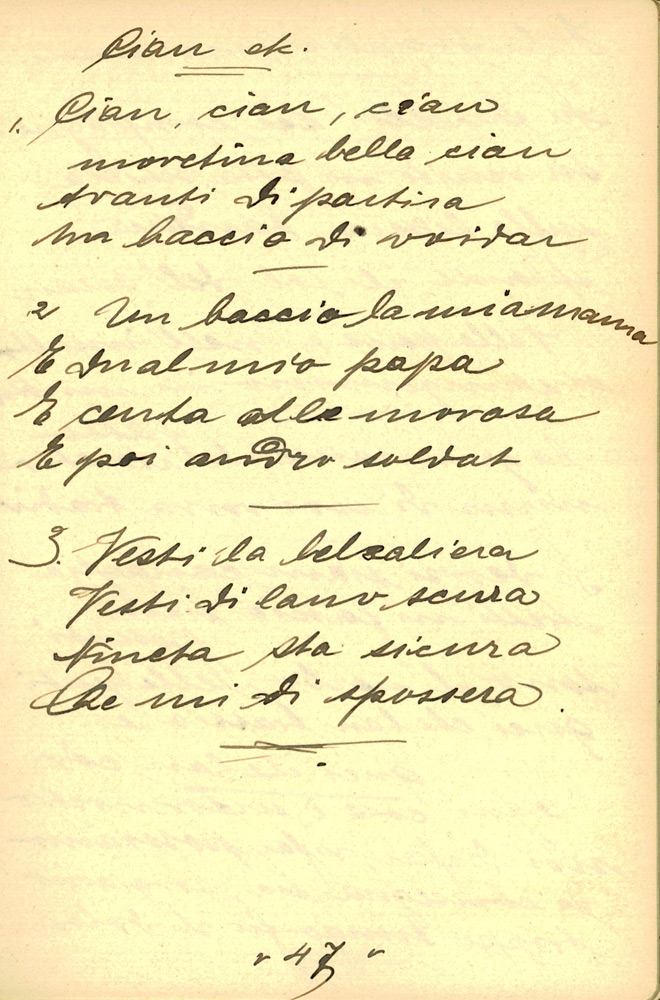 Cian etc.
1. Cian, cian, cian
moretina bella cian
Avanti di partira
un baccio di voi dar
2 Un baccio la mia mama
E dual mio papa
E centa alla morosa
E poi andro soldat
3. Vesti da belsaliera
Vesti di lano scura
Nineta sta sicura
Che mi di spossera.
47